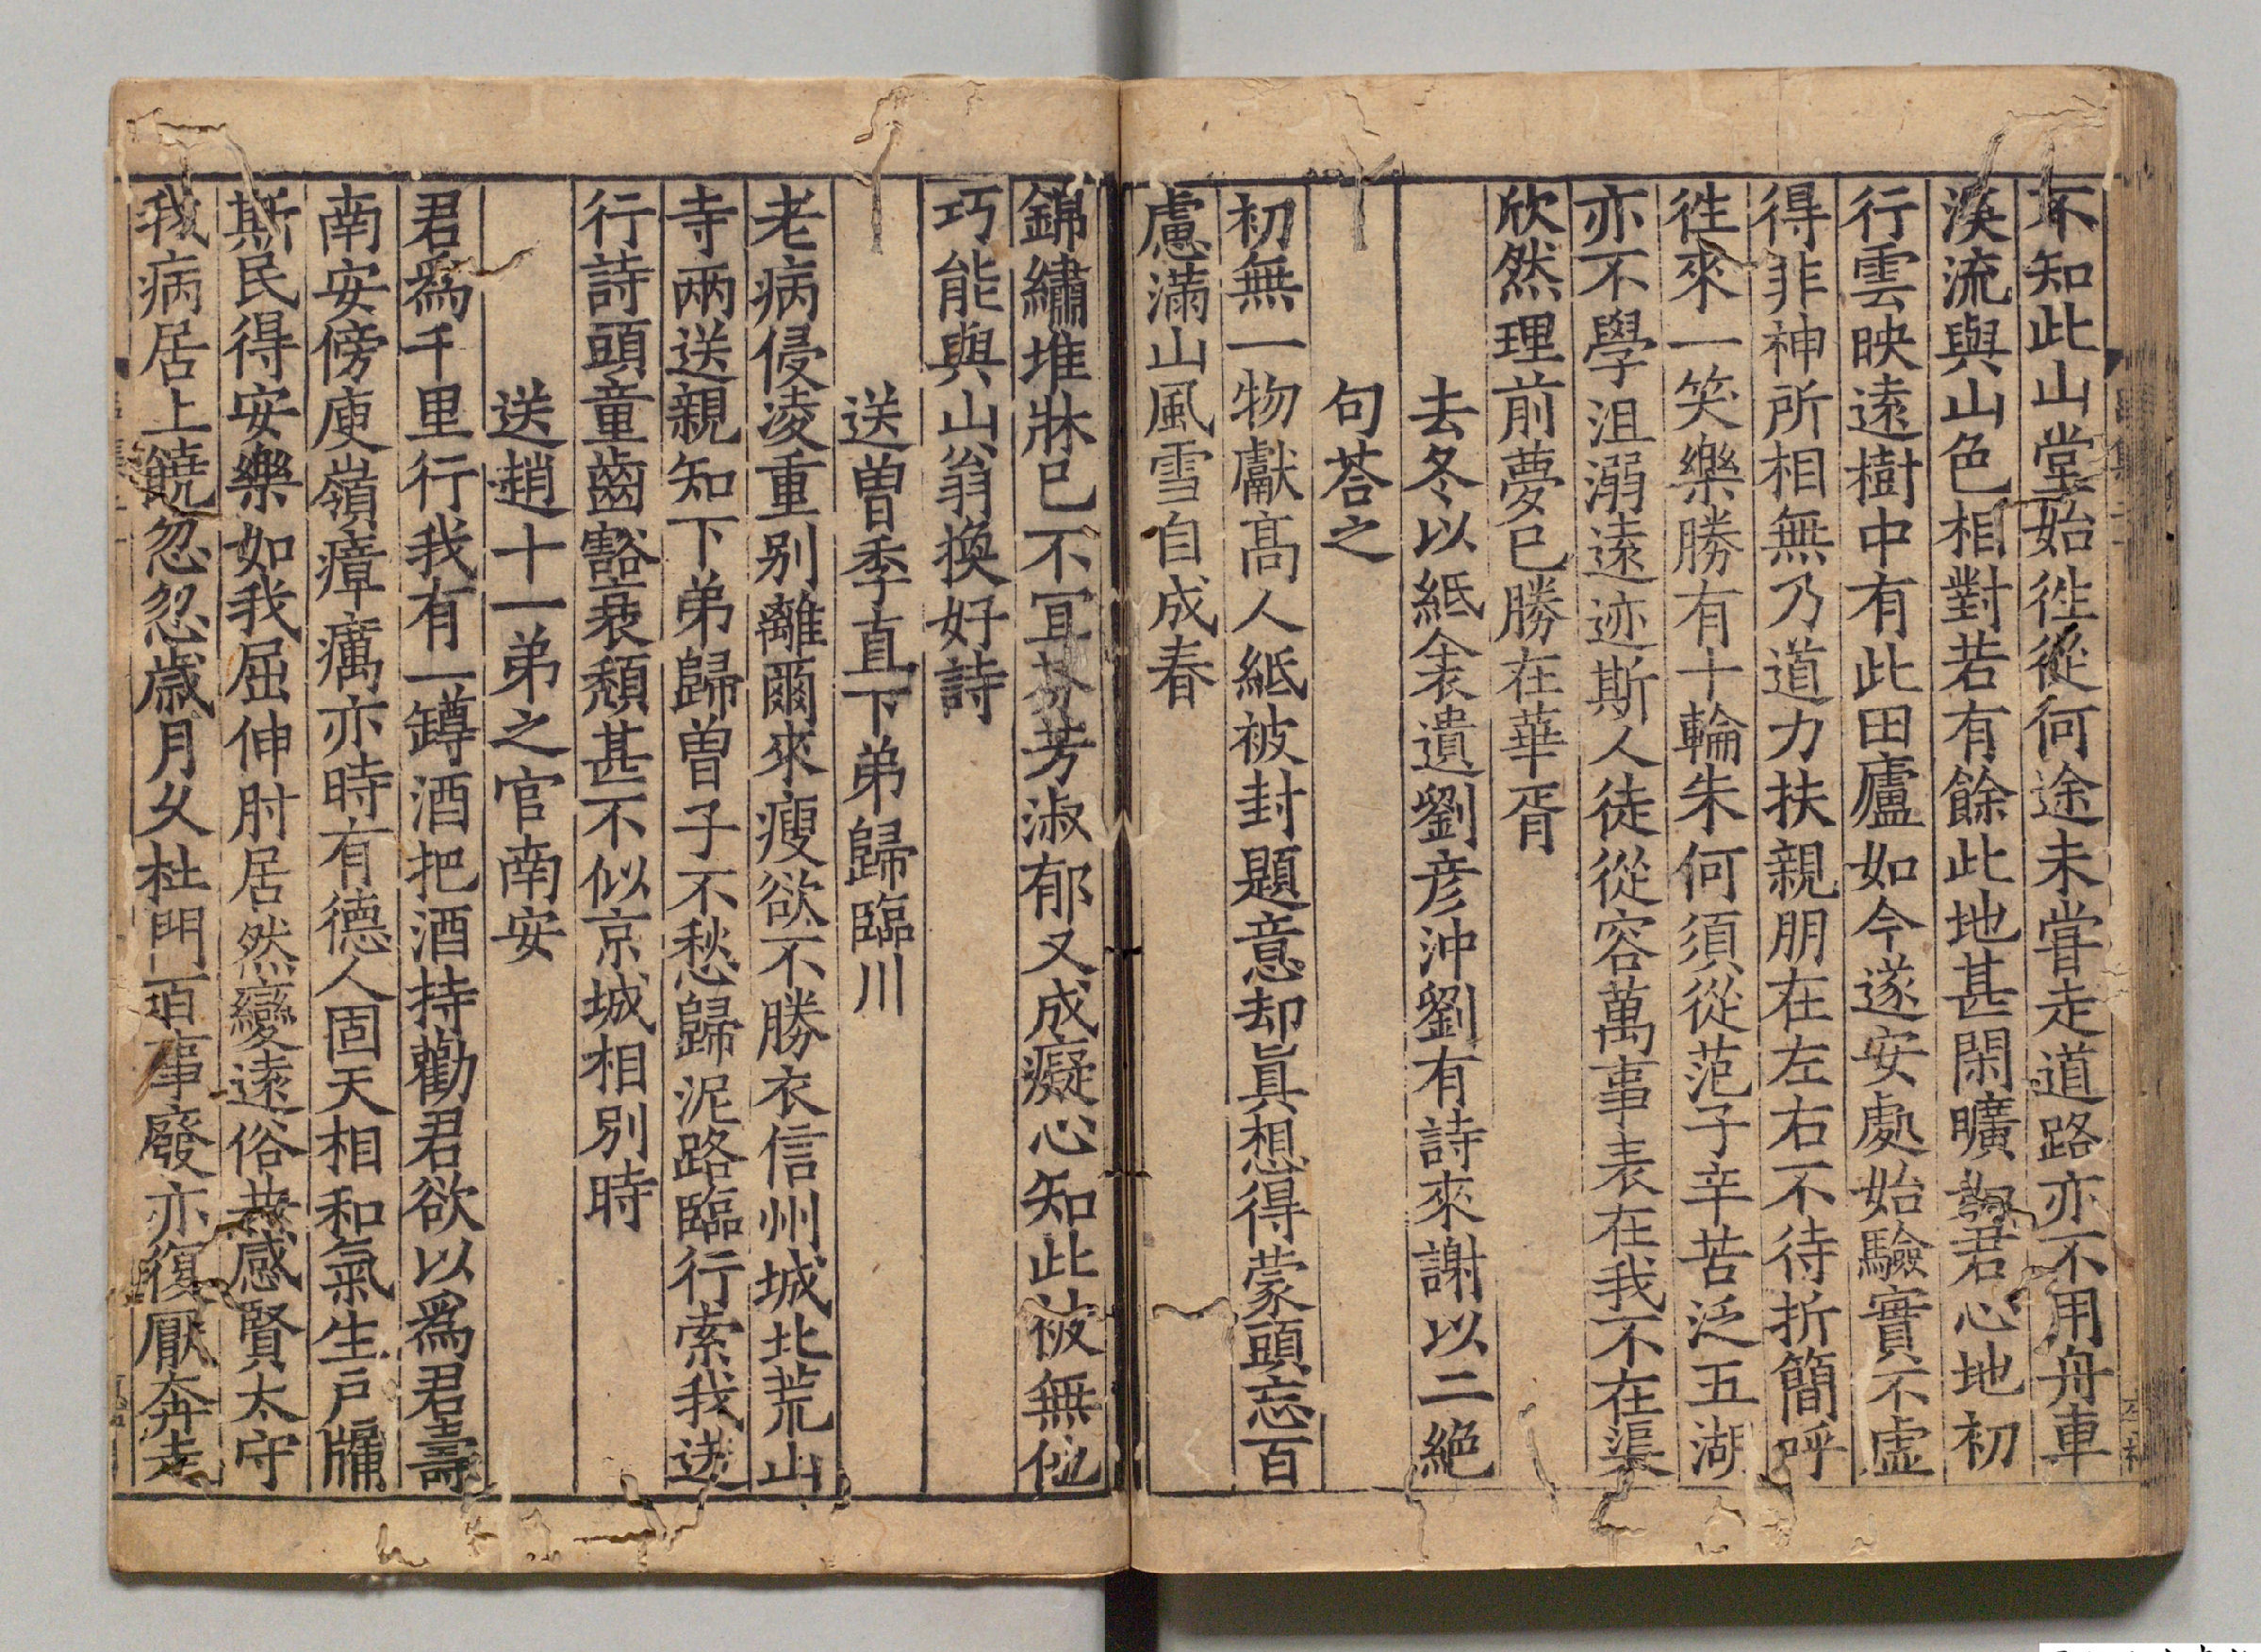 不知此山堂始徃從何途未甞走道路亦不用舟車
溪流與山色相對若有餘此地甚閑曠君心地初
行雲映遠樹中有此田廬如今遂安處始驗實不虚
得非神所相無乃道力扶親朋在左右不待折簡呼
徃來一笑樂勝有十輪朱何須從范子辛苦泛五湖
亦不學沮溺遠迹斯人徒從容萬事表在我不在渠
欣然理前夢已勝在華胥
去冬以紙衾遺劉彦沖劉有詩來謝以二絶
句荅之
初無一物獻髙人紙被封題意却眞想得蒙頭忘百
慮滿山風雪自成春
錦繡堆牀已不冝芬芳淑郁又成癡心知此被無他
巧能與山翁換好詩
送曽季直下弟歸臨川
老病侵凌重别離爾來瘦欲不勝衣信州城北荒山
寺兩送親知下弟歸曽子不愁歸泥路臨行索我送
行詩頭童齒豁衰頽甚不似京城相別時
送趙十一弟之官南安
君爲千里行我有一罇酒把酒持勸君欲以爲君壽
南安傍庾嶺瘴癘亦時有德人固天相和氣生戶牖
斯民得安樂如我屈伸肘居然變遠俗恭感賢太守
我病居上饒忽忽歲月久杜門百事廢亦復厭奔走